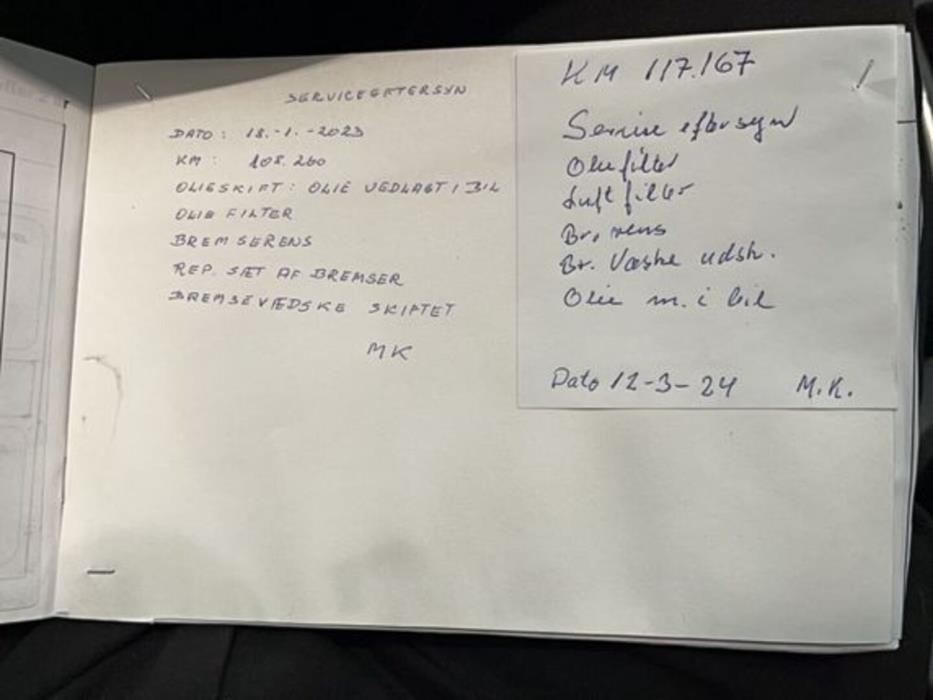 SERVICEEFTERSYN
DATO: 18.-1.-2023
KM: 108.260
OLIESKIFT: OLIE VEDLAGT I BIL
OLIE FILTER
BREMSERENS
REP. SÆT AF BREMSER
BREMSEVÆDSKE SKIFTET
MK
KM 117.167
Service eftersyn
Oliefilter
Luft filter
Br. rens
Br. Væske udsk.
Olie m. i bil
Dato 12-3-24 M.K.